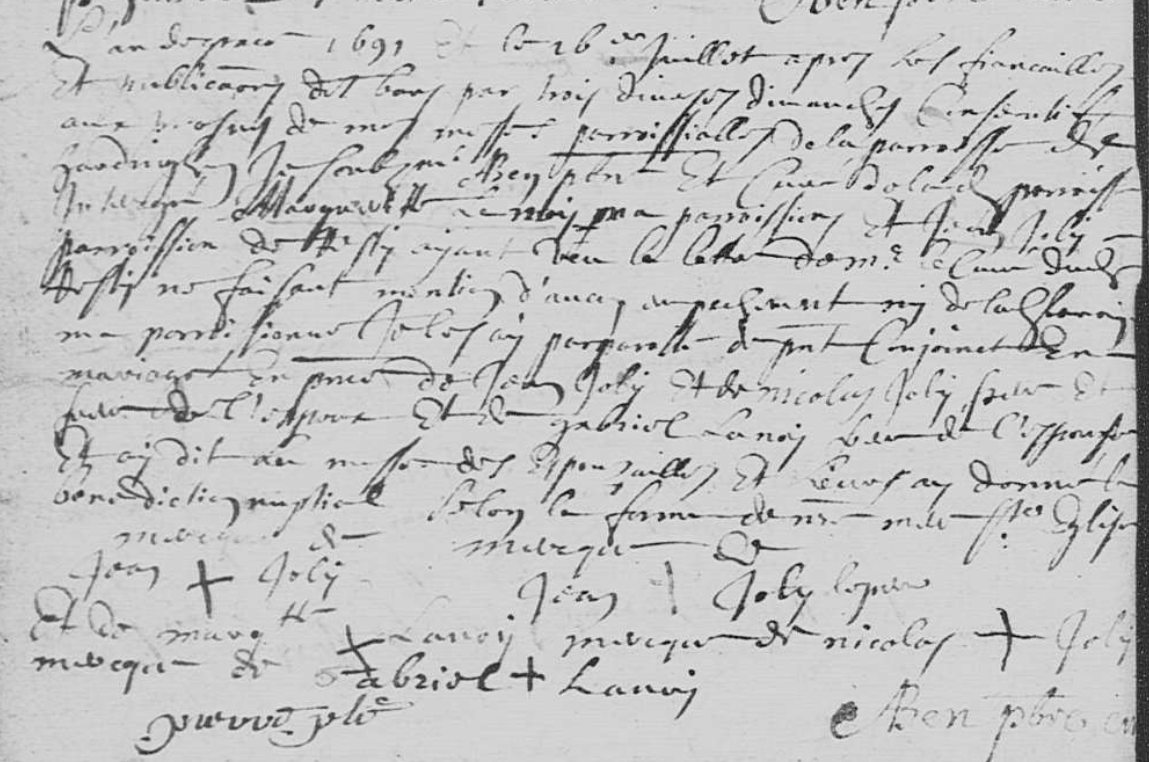 L'an de grace 1691 Et le 26 de Juillet apres les fiancailles
Et publicaons des bans par trois divers dimanches Consecutifs
aux prosnes de mes messes parroissialles de la parroisse de
hardinghen Je soubz.né Ben pbre Et Curé de lad. parroisse
Interrogé Marguerite Lanoij ma parroissienne Et Jean Joly
parroissien de ayant veu la lettre de mr. le Curé dud.
ne faisant mention d'aucun empechement ny de lad. Lanoij
ma parroisienne Je les aij par parolle de pnt Conjoinct En
mariage En pnce de Jean Joly Et de nicolas Joly pere Et
frere de l'espoux Et de gabriel Lanoij de l'espouse
Et aij dit la messe des Espousailles Et Leurs ay donné la
benediction nuptial selon la forme de nre mere ste Eglise
mercque de mercque de
Jean + Joly Jean | Joly le pere
Et de marg.tte + Lanoij mercque de nicolas + Joly
mercque de Gabriel + Lanoij
Ben pbre